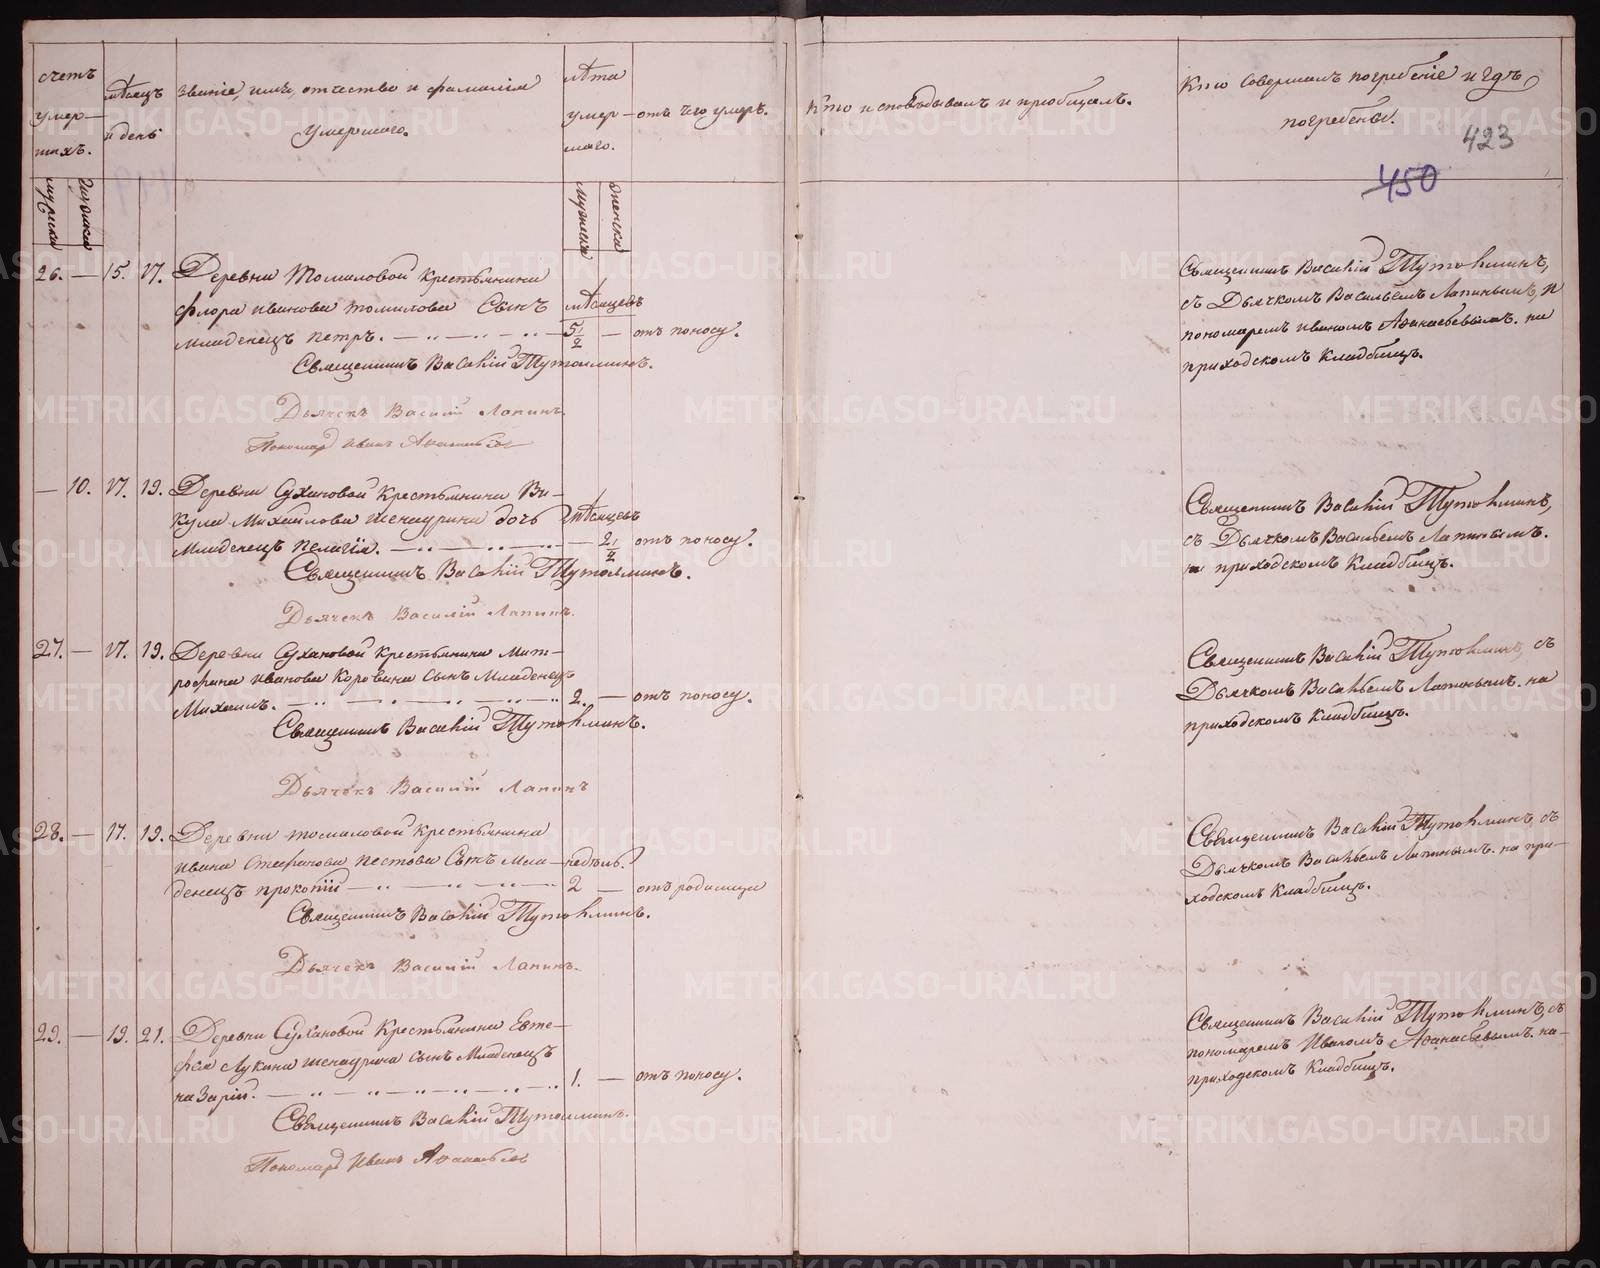 счетъ
умер-
шихъ.
мѣсяцъ
и день
званіе, имя, отчество и фамилія
умершаго.
лѣта
умер-
шаго.
отъ чего умеръ.
Кто исповѣдывалъ и пріобщалъ.
Кто совершалъ погребеніе и гдѣ
погребены.
423
450
мужеска
женска
мужеска
женска
26. — 15. 17. Деревни Томиловой Крестьянина
Флора иванова томилова Сынъ мѣсяцевъ
Младенецъ петръ. 5 1/2 — отъ поносу.
Священникъ Василій Тутолминъ.
Дьячекъ Василій Лапинъ.
Пономарь иванъ Аѳанасьевъ
Священникъ Василій Тутолминъ,
съ Дьячкомъ Васильемъ Лапинымъ, и
пономаремъ иваномъ Аѳанасьевымъ. на
приходскомъ Кладбищѣ.
— 10. 17. 19. Деревни Сухановой Крестьянина Ви-
кула Михайлова шенаурина дочь мѣсяцевъ
Младенецъ пелагія. — 2 1/2 отъ поносу.
Священникъ Василій Тутолминъ.
Дьячекъ Василій Лапинъ.
Священникъ Василій Тутолминъ,
съ Дьячкомъ Васильемъ Лапинымъ.
на приходскомъ Кладбищѣ.
27. — 17. 19. Деревни Сухановой Крестьянина Мит-
рофана иванова Коровина сынъ Младенецъ
Михаилъ. 2. — отъ поносу.
Священникъ Василій Тутолминъ.
Дьячекъ Василій Лапинъ
Священникъ Василій Тутолминъ, съ
Дьячкомъ Васильемъ Лапинымъ. на
приходскомъ Кладбищѣ.
28. — 17. 19. Деревни томиловой Крестьянина
ивана Стефанова пестова Сынъ Мла- недѣль
денецъ прокопій 2 — отъ родимца
Священникъ Василій Тутолминъ.
Дьячекъ Василій Лапинъ.
Священникъ Василій Тутолминъ, съ
Дьячкомъ Васильемъ Лапинымъ. на при-
ходскомъ Кладбищѣ.
29. — 19. 21. Деревни Сухановой Крестьянина Евте-
фея Лукина шенаурина сынъ Младенецъ
назарій. 1. — отъ поносу.
Священникъ Василій Тутолминъ.
Пономарь иванъ Аѳанасьевъ
Священникъ Василій Тутолминъ, съ
пономаремъ Иваномъ Аѳанасьевымъ. на
приходскомъ Кладбищѣ.
METRIKI.GASO-URAL.RU